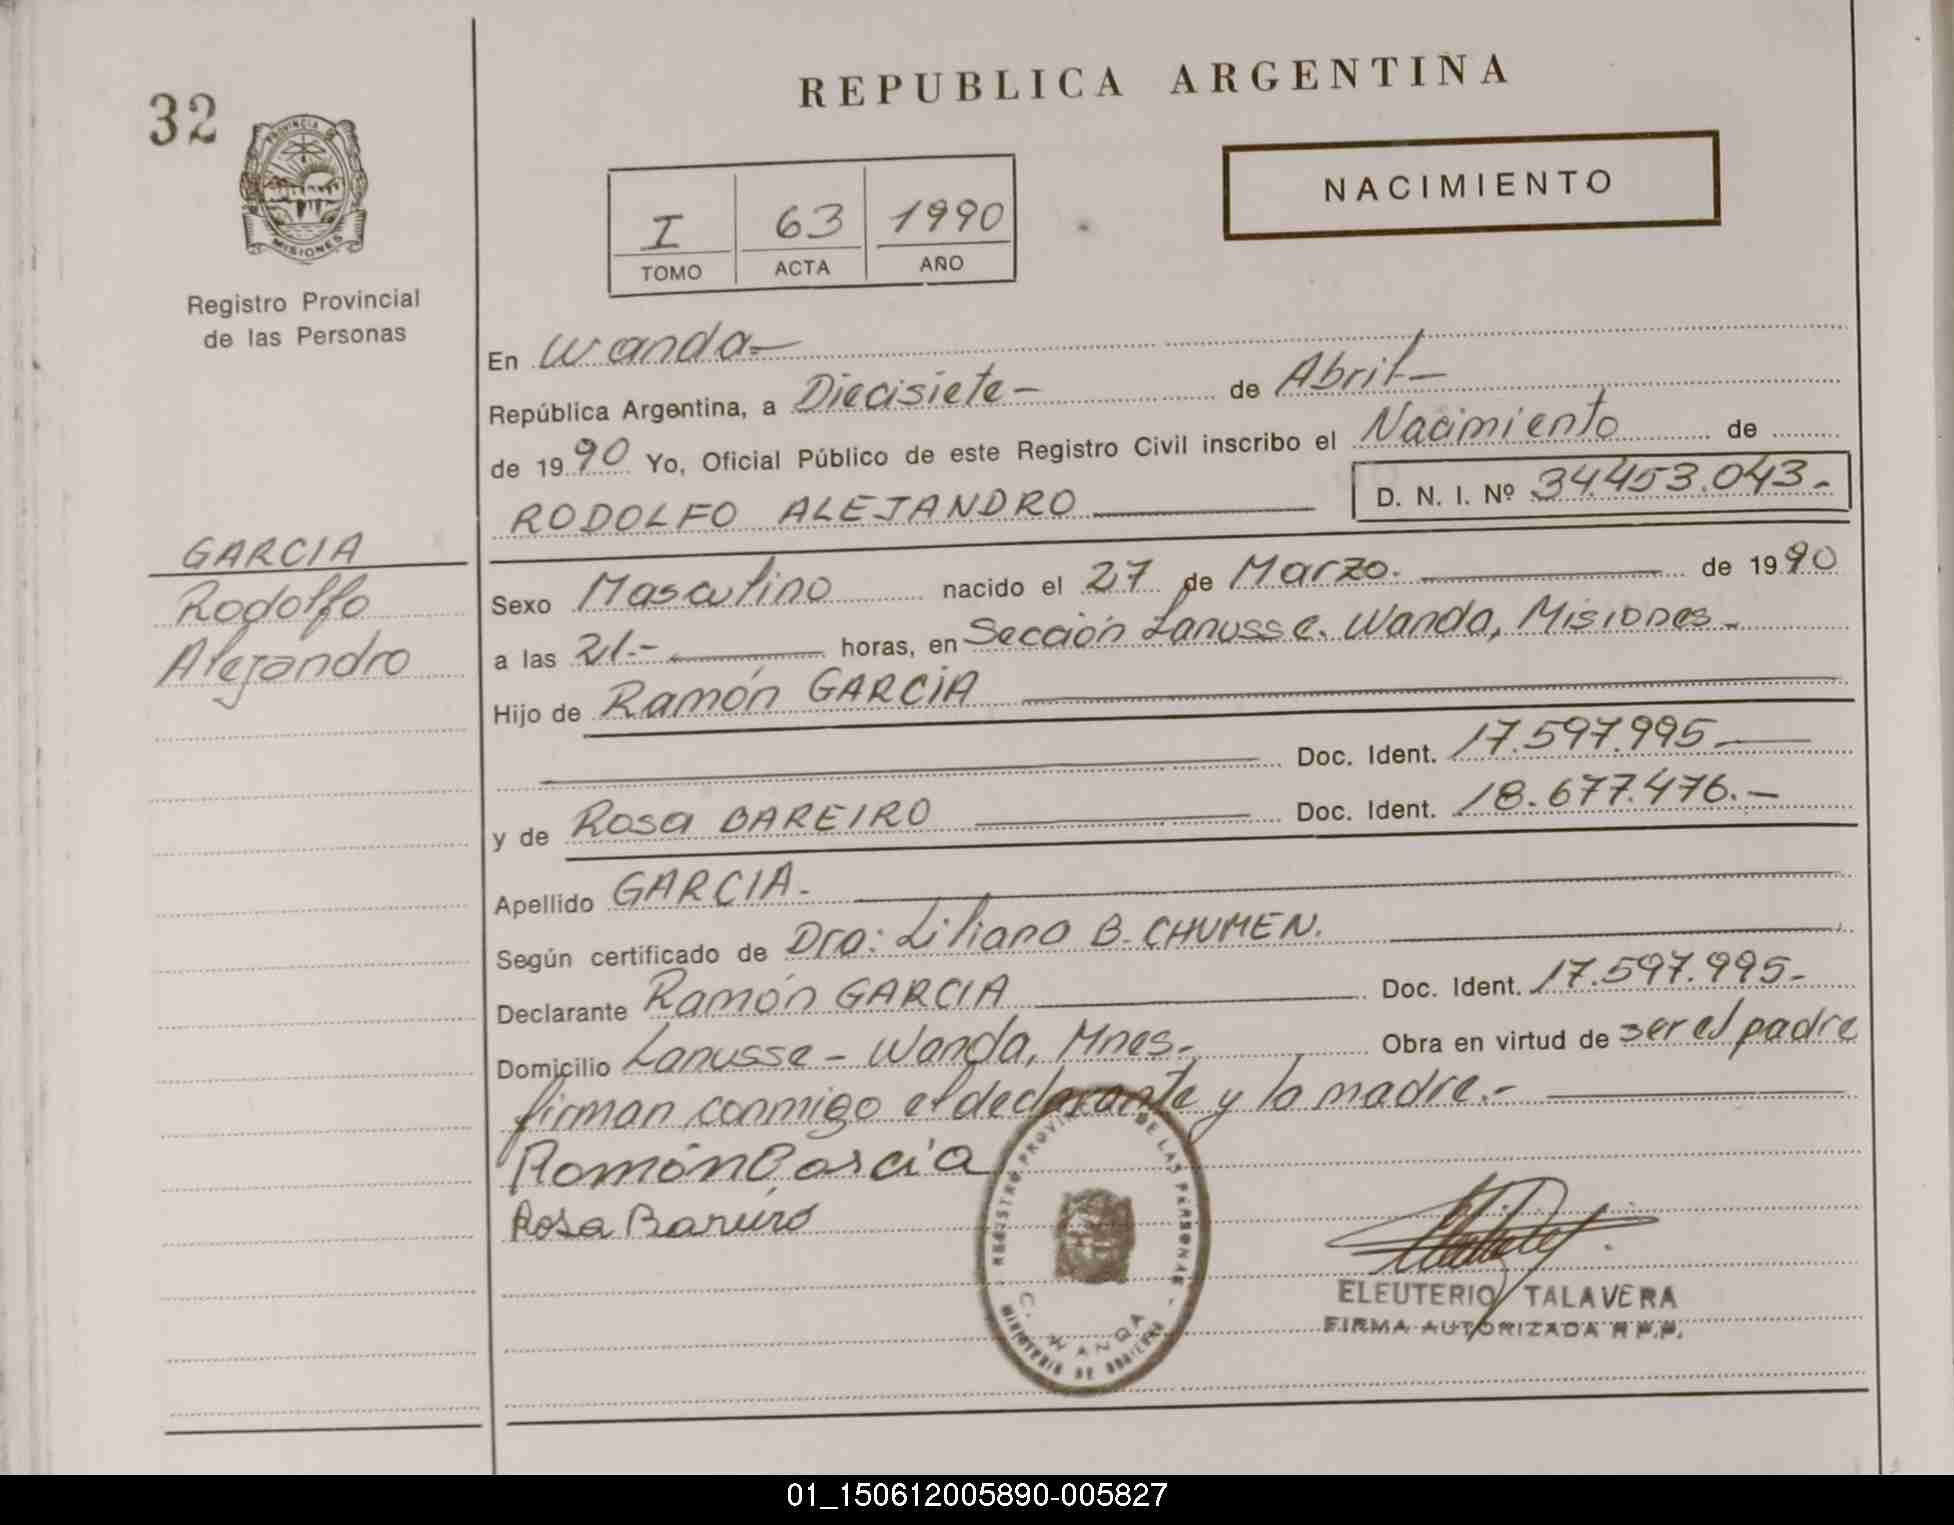 32
PROVINCIA DE
MISIONES
Registro Provincial
de las Personas
GARCIA
Rodolfo
Alejandro
REPUBLICA ARGENTINA
NACIMIENTO
I 63 1990
TOMO ACTA AÑO
En Wanda-
República Argentina, a Diecisiete- de Abril-
de 1990 Yo, Oficial Público de este Registro Civil inscribo el Nacimiento de
RODOLFO ALEJANDRO D. N. I. Nº 34.453.043.-
Sexo Masculino nacido el 27 de Marzo. de 1990
a las 21.- horas, en Sección Lanusse. Wanda, Misiones-
Hijo de Ramón GARCIA
Doc. Ident. 17.597.995-
y de Rosa BAREIRO Doc. Ident. 18.677.476.-
Apellido GARCIA.
Según certificado de Dra: Liliana B. CHUMEN.
Declarante Ramón GARCIA Doc. Ident. 17.597.995-
Domicilio Lanusse - Wanda, Mnes. Obra en virtud de ser el padre
firman conmigo el declarante y la madre.-
Ramón Garcia
Rosa Bareiro
REGISTRO PROVINCIAL DE LAS PERSONAS
WANDA
MINISTERIO DE GOBIERNO
ELEUTERIO TALAVERA
FIRMA AUTORIZADA R.P.P.
01_150612005890-005827